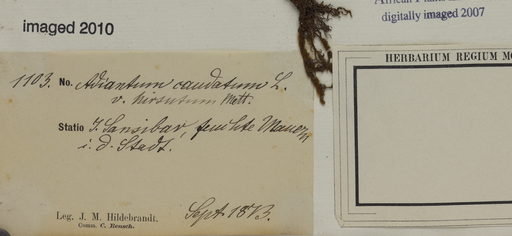 imaged 2010
digitally imaged 2007
HERBARIUM REGIUM MO
1103. No. Adiantum caudatum L.
v. hirsutum Mett.
Statio I. Sansibar, feuchte Mauern
i. d. Stadt.
Leg. J. M. Hildebrandt.
Comm. C. Rensch.
Sept. 1873.